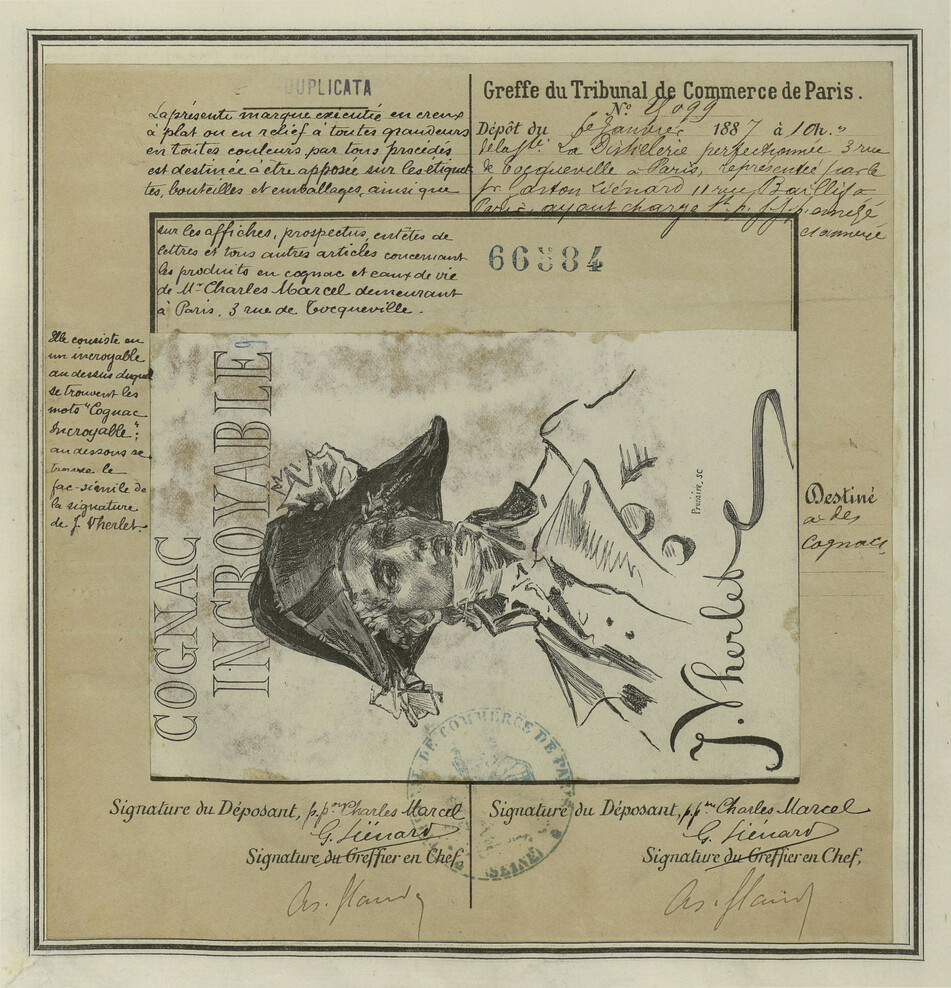 DUPLICATA
La présente marque exécutée en creux
à plat ou en relief à toutes grandeurs
en toutes couleurs par tous procédés
est destinée à être apposée sur les étiquet
tes, bouteilles et emballages, ainsi que
sur les affiches, prospectus, entêtes de
lettres et tous autres articles concernant
les produits en cognac et eaux de vie
de Mr Charles Marcel demeurant
à Paris, 3 rue de Tocqueville.
Greffe du Tribunal de Commerce de Paris.
No
Dépôt du 6 Janvier 1887 à 10h.
de la Sté La Distillerie perfectionnée 3 rue
de Tocqueville à Paris, représentée par le
Sr Gaston Liénard 11 rue Baillif à
Paris, ayant charge
66884
Elle consiste en
un incroyable
au dessus duquel
se trouvent les
mots "Cognac
Incroyable";
au dessous se
trouve le
fac-simile de
la signature
de J. Vherlet.
COGNAC
INCROYABLE
Prunaire, sc
J. Vherlet
Destiné
à des
Cognacs
DE COMMERCE DE PARIS
(SEINE)
Signature du Déposant, p. pon Charles Marcel
G. Liénard
Signature du Greffier en Chef,
Signature du Déposant, p. pon Charles Marcel
G. Liénard
Signature du Greffier en Chef,